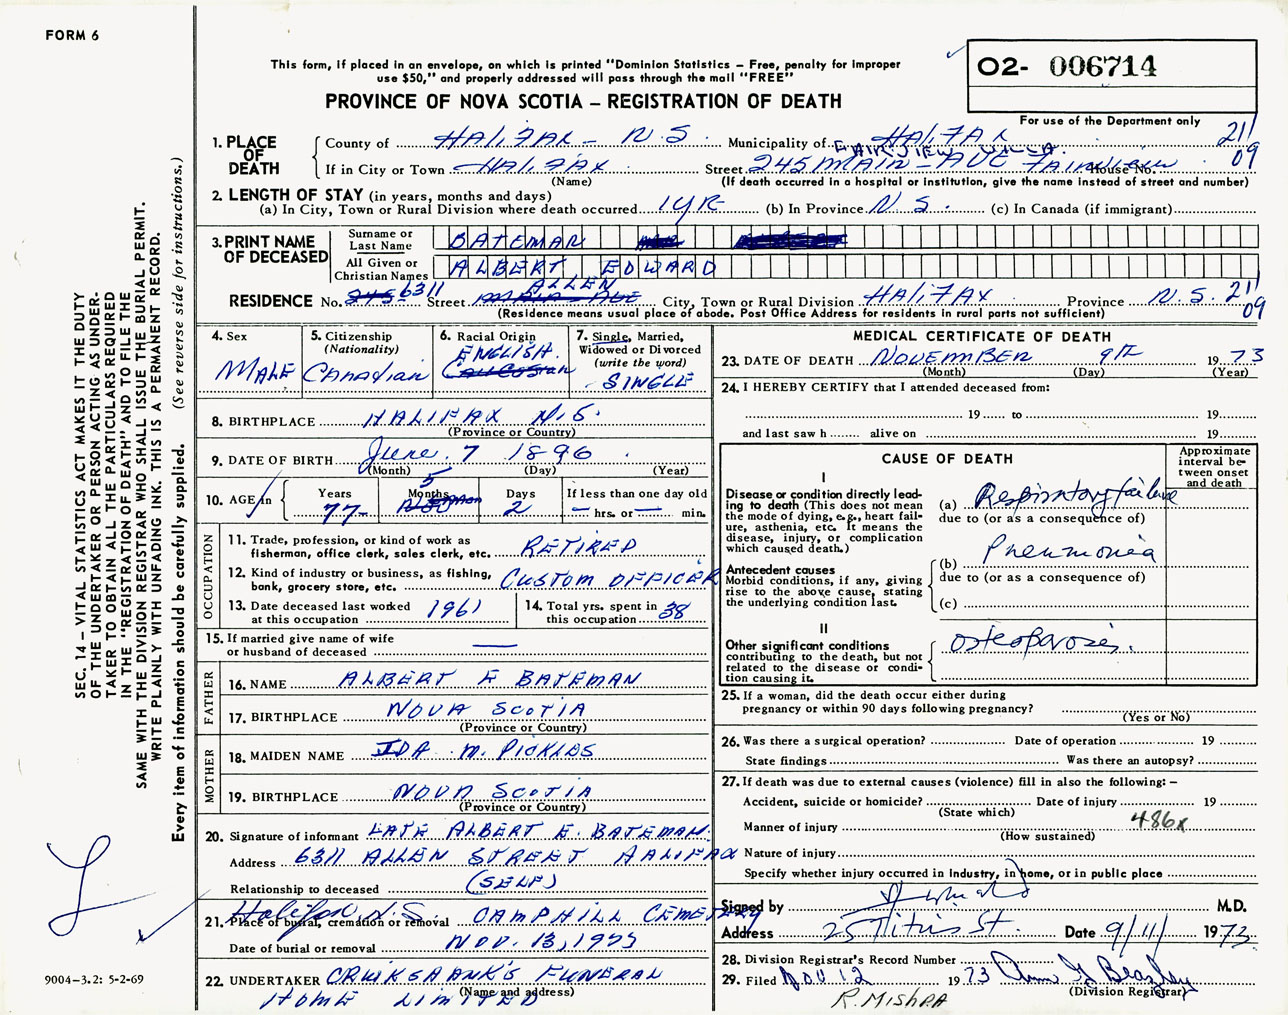 FORM 6
This form, if placed in an envelope, on which is printed "Dominion Statistics – Free, penalty for improper
use $50," and properly addressed will pass through the mail "FREE"
O2- 006714
PROVINCE OF NOVA SCOTIA – REGISTRATION OF DEATH
For use of the Department only
1. PLACE OF DEATH
County of HALIFAX – N.S. Municipality of HALIFAX 21/
FAIRVIEW VILLA.
If in City or Town HALIFAX Street 245 MAIN – AVE FAIRVIEW House No. 09
(Name) (If death occurred in a hospital or institution, give the name instead of street and number)
2. LENGTH OF STAY (in years, months and days)
(a) In City, Town or Rural Division where death occurred 1YR (b) In Province N.S. (c) In Canada (if immigrant)
3. PRINT NAME OF DECEASED
Surname or Last Name BATEMAN
All Given or Christian Names ALBERT EDWARD
RESIDENCE No. 245 6311 Street MAIN AVE ALLEN City, Town or Rural Division HALIFAX Province N.S. 21/
(Residence means usual place of abode. Post Office Address for residents in rural parts not sufficient) 09
4. Sex MALE
5. Citizenship (Nationality) Canadian
6. Racial Origin ENGLISH. Caucasian
7. Single, Married, Widowed or Divorced (write the word) SINGLE
8. BIRTHPLACE HALIFAX N.S.
(Province or Country)
9. DATE OF BIRTH June 7 1896
(Month) (Day) (Year)
10. AGE in Years 77 Months 5 Days 2 If less than one day old — hrs. or — min.
OCCUPATION
11. Trade, profession, or kind of work as
fisherman, office clerk, sales clerk, etc. RETIRED
12. Kind of industry or business, as fishing,
bank, grocery store, etc. CUSTOM OFFICER
13. Date deceased last worked
at this occupation 1961
14. Total yrs. spent in
this occupation 38
15. If married give name of wife
or husband of deceased —
FATHER
16. NAME ALBERT E BATEMAN
17. BIRTHPLACE NOVA SCOTIA
(Province or Country)
MOTHER
18. MAIDEN NAME IDA M. PICKLES
19. BIRTHPLACE NOVA SCOTIA
(Province or Country)
20. Signature of informant LATE ALBERT E. BATEMAN.
Address 6311 ALLEN STREET HALIFAX
Relationship to deceased (SELF)
Halifax N.S
21. Place of burial, cremation or removal CAMPHILL CEMETERY
Date of burial or removal NOV. 13, 1973
22. UNDERTAKER CRUIKSHANK'S FUNERAL
(Name and address)
HOME LIMITED
MEDICAL CERTIFICATE OF DEATH
23. DATE OF DEATH NOVEMBER 9th 1973
(Month) (Day) (Year)
24. I HEREBY CERTIFY that I attended deceased from:
19 to 19
and last saw h alive on 19
CAUSE OF DEATH
Approximate interval between onset and death
I
Disease or condition directly lead-
ing to death (This does not mean
the mode of dying, e.g., heart fail-
ure, asthenia, etc. It means the
disease, injury, or complication
which caused death.)
(a) Respiratory failure
due to (or as a consequence of)
(b) Pneumonia
due to (or as a consequence of)
(c)
Antecedent causes
Morbid conditions, if any, giving
rise to the above cause, stating
the underlying condition last.
II
Other significant conditions
contributing to the death, but not
related to the disease or condi-
tion causing it.
Osteoporosis.
25. If a woman, did the death occur either during
pregnancy or within 90 days following pregnancy?
(Yes or No)
26. Was there a surgical operation? Date of operation 19
State findings Was there an autopsy?
27. If death was due to external causes (violence) fill in also the following: –
Accident, suicide or homicide? Date of injury 19
(State which)
486x
Manner of injury
(How sustained)
Nature of injury
Specify whether injury occurred in industry, in home, or in public place
Signed by M.D.
Address 25 Titus St. Date 9/11/ 1973
28. Division Registrar's Record Number
29. Filed NOV 12 1973
(Division Registrar)
R. MISHRA
SEC. 14 – VITAL STATISTICS ACT MAKES IT THE DUTY
OF THE UNDERTAKER OR PERSON ACTING AS UNDER-
TAKER TO OBTAIN ALL THE PARTICULARS REQUIRED
IN THE "REGISTRATION OF DEATH" AND TO FILE THE
SAME WITH THE DIVISION REGISTRAR WHO SHALL ISSUE THE BURIAL PERMIT.
WRITE PLAINLY WITH UNFADING INK. THIS IS A PERMANENT RECORD.
Every item of information should be carefully supplied. (See reverse side for instructions.)
9004–3.2: 5-2-69